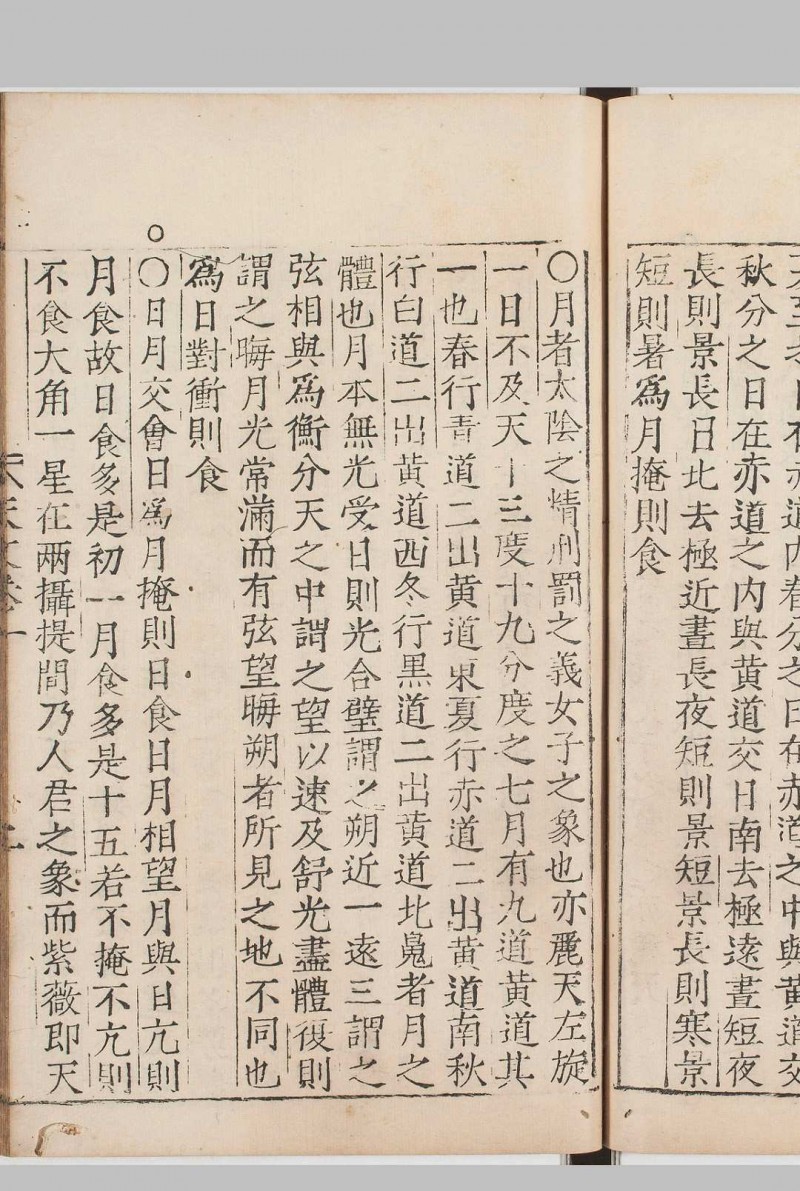 至 日在赤道内春分之日在赤道之中與黄道交
秋分之日在赤道之内與黄道交日南去極遠晝短夜
長則景長日北去極近晝長夜短則景短景長則寒景
短則暑為月掩則食
〇月者太陰之情刑罰之義女子之象也亦麗天左旋
一日不及天十三度十九分度之七月有九道黄道其
一也春行青道二出黄道東夏行赤道二出黄道南秋
行白道二出黄道西冬行黑道二出黄道北鳧者月之
體也月本無光受日則光合璧謂之朔近一遠三謂之
弦相與為衡分天之中謂之望以速及舒光盡體復則
謂之晦月光常滿而有弦望晦朔者所見之地不同也
為日對衝則食
〇日月交會日為月掩則日食日月相望月與日亢則
月食故日食多是初一月食多是十五若不掩不亢則
不食大角一星在兩攝提間乃人君之象而紫薇即天
天文卷一